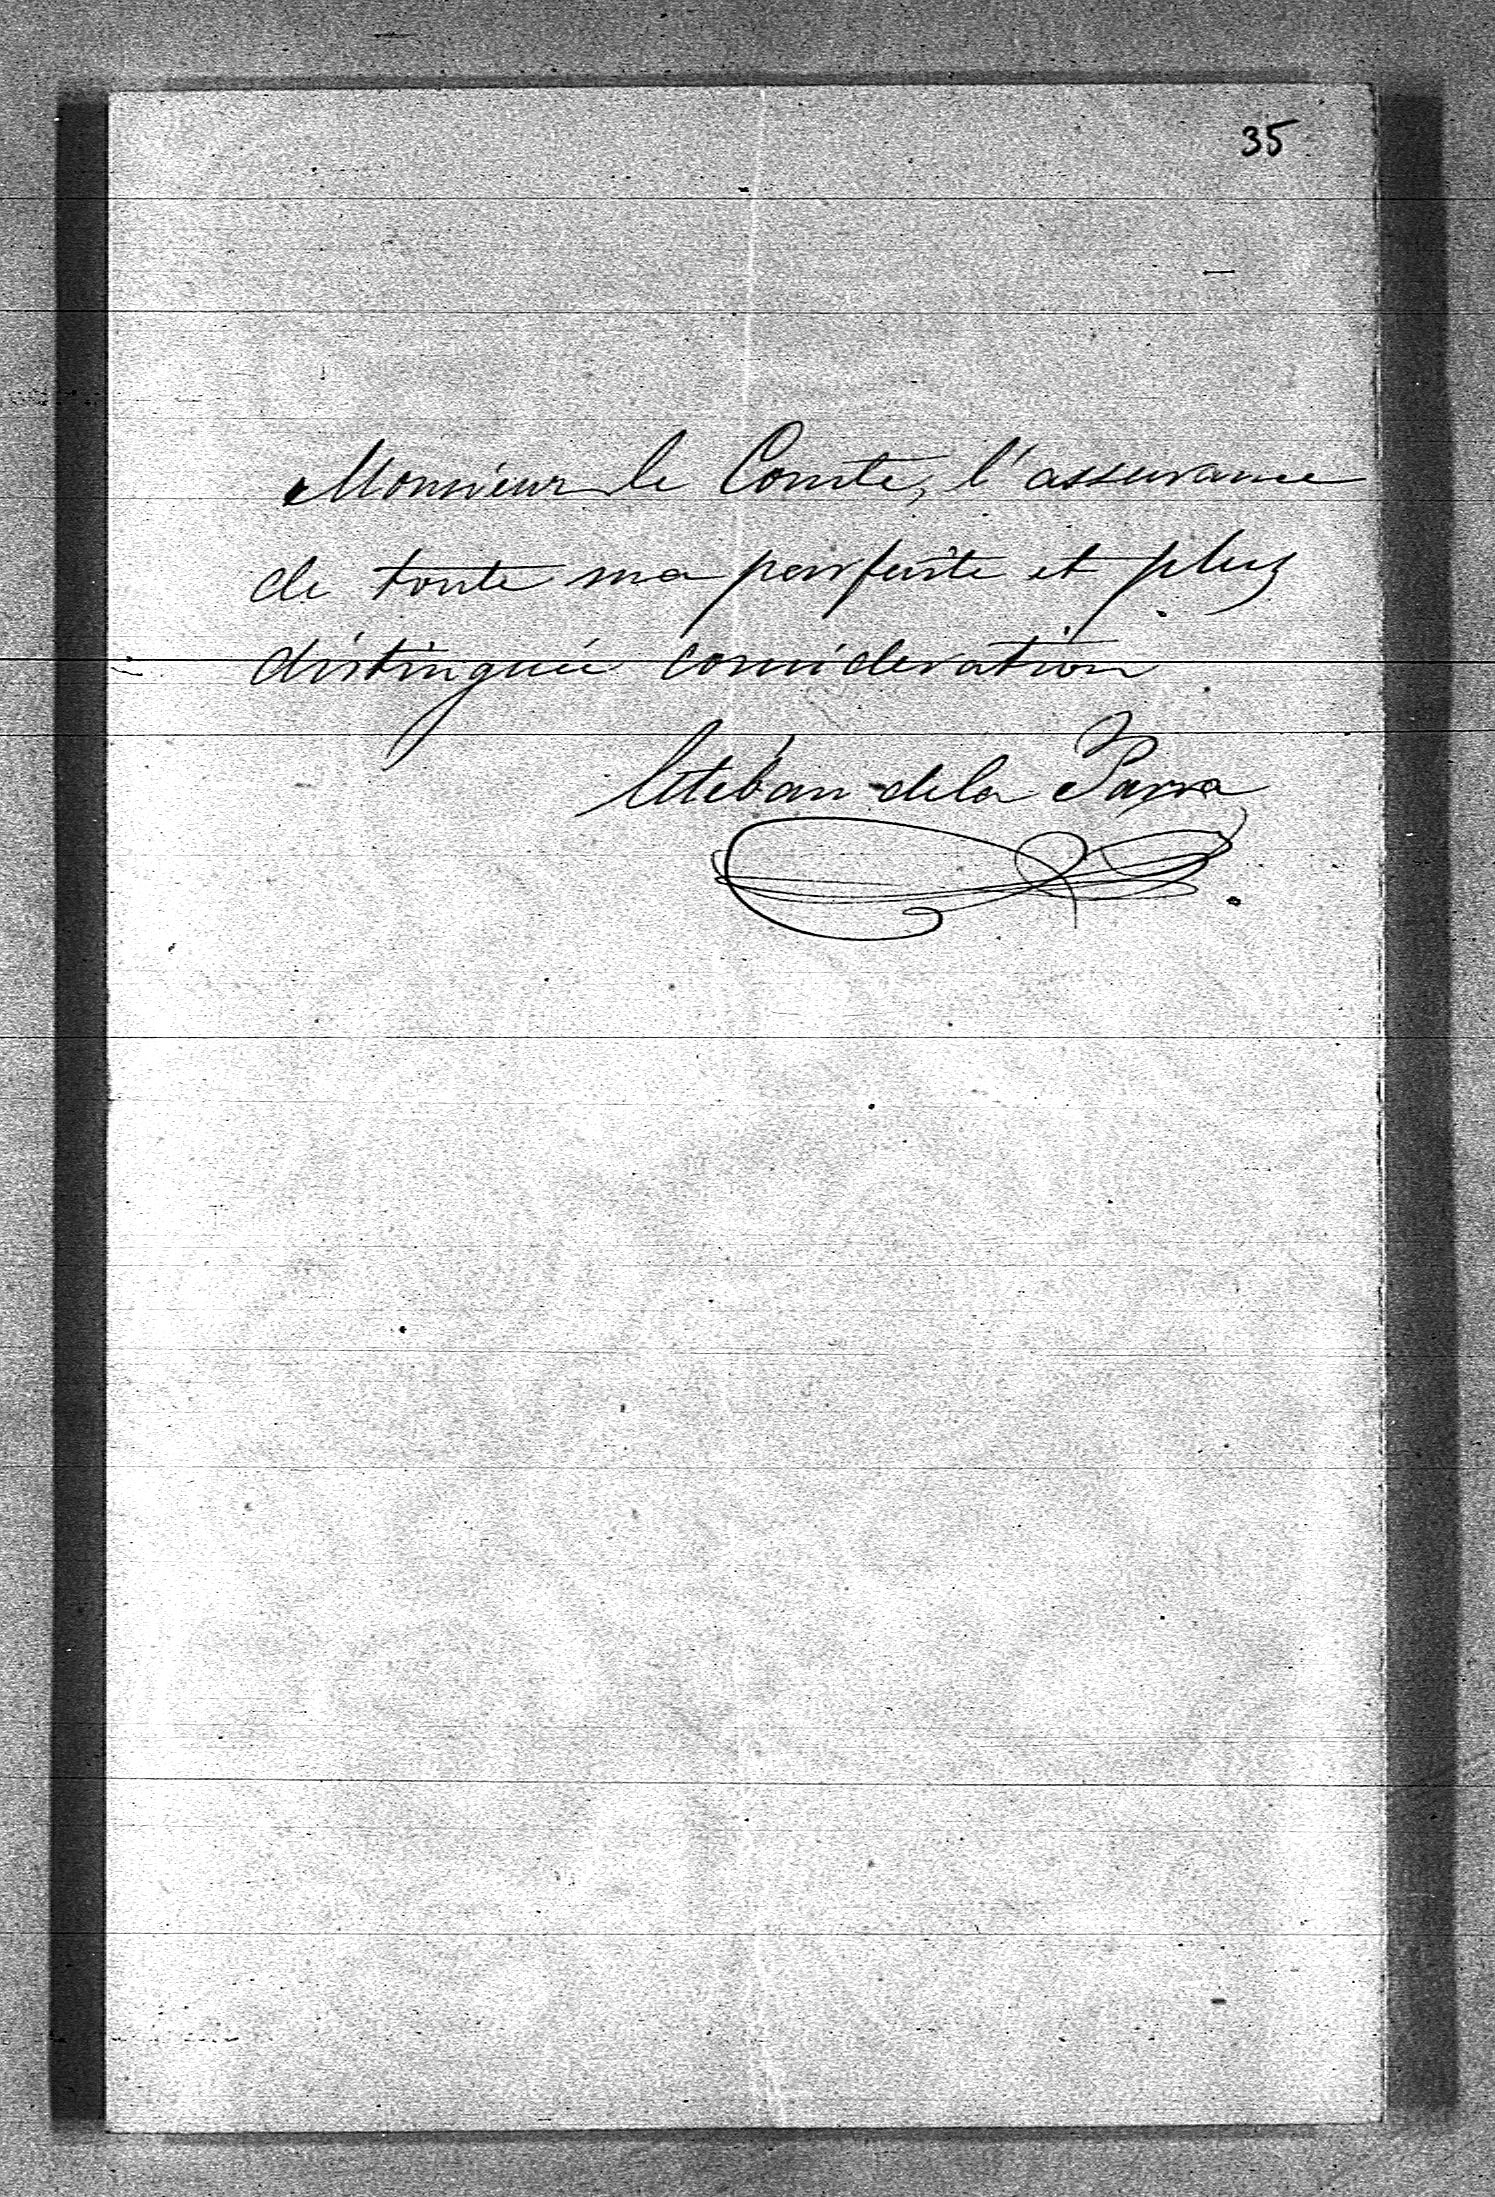 35
Monsieur le Comte, l'assurance
de toute ma parfaite et plus
distinguée consideration
Esteban de la Parra